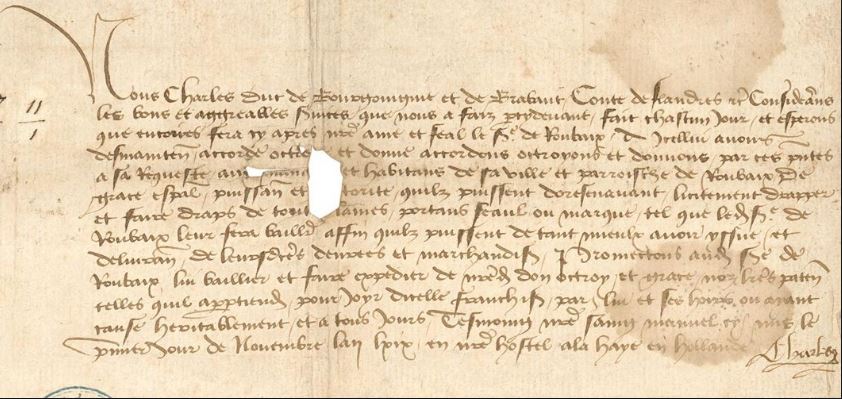 Nous Charles Duc de Bourgoingne et de Brabant, Conte de flandres etc Considerans
les bons et aggreables services, que nous a faiz pardevant, fait chascun jour, et esperons
que encores fera cy apres, nre ame et feal le Sr de Roubaix, A Icellui avons
desmainten, accordé octr et donné accordons octroyons et donnons par ces pntes
a sa Requeste aux et habitans de sa ville et parroische de Roubaix, De
grace espal, puissan et torité, quilz puissent doresenavant, licitement drapper
et faire draps de tout laines, portans seaul ou marque, tel que ledt Sr de
Roubaix leur fera baillr affin quilz puissent de tant mieulx avoir yssue, et
delivran, de leursdtes denrees et marchandis, Promectons audt Sr de
Roubaix, lui baillier et faire expedier de nredt don octroy, et grace, noz lres paten
telles quil appartiend, pour Joyr dicelle franchis, par lui et ses hoirs, ou ayant
cause heritablement, et a tous Jours, Tesmoing nre saing manuel cy mis le
pmier Jour de Novembre lan lxix, en nre hostel a la haye en hollande Charles
11
1